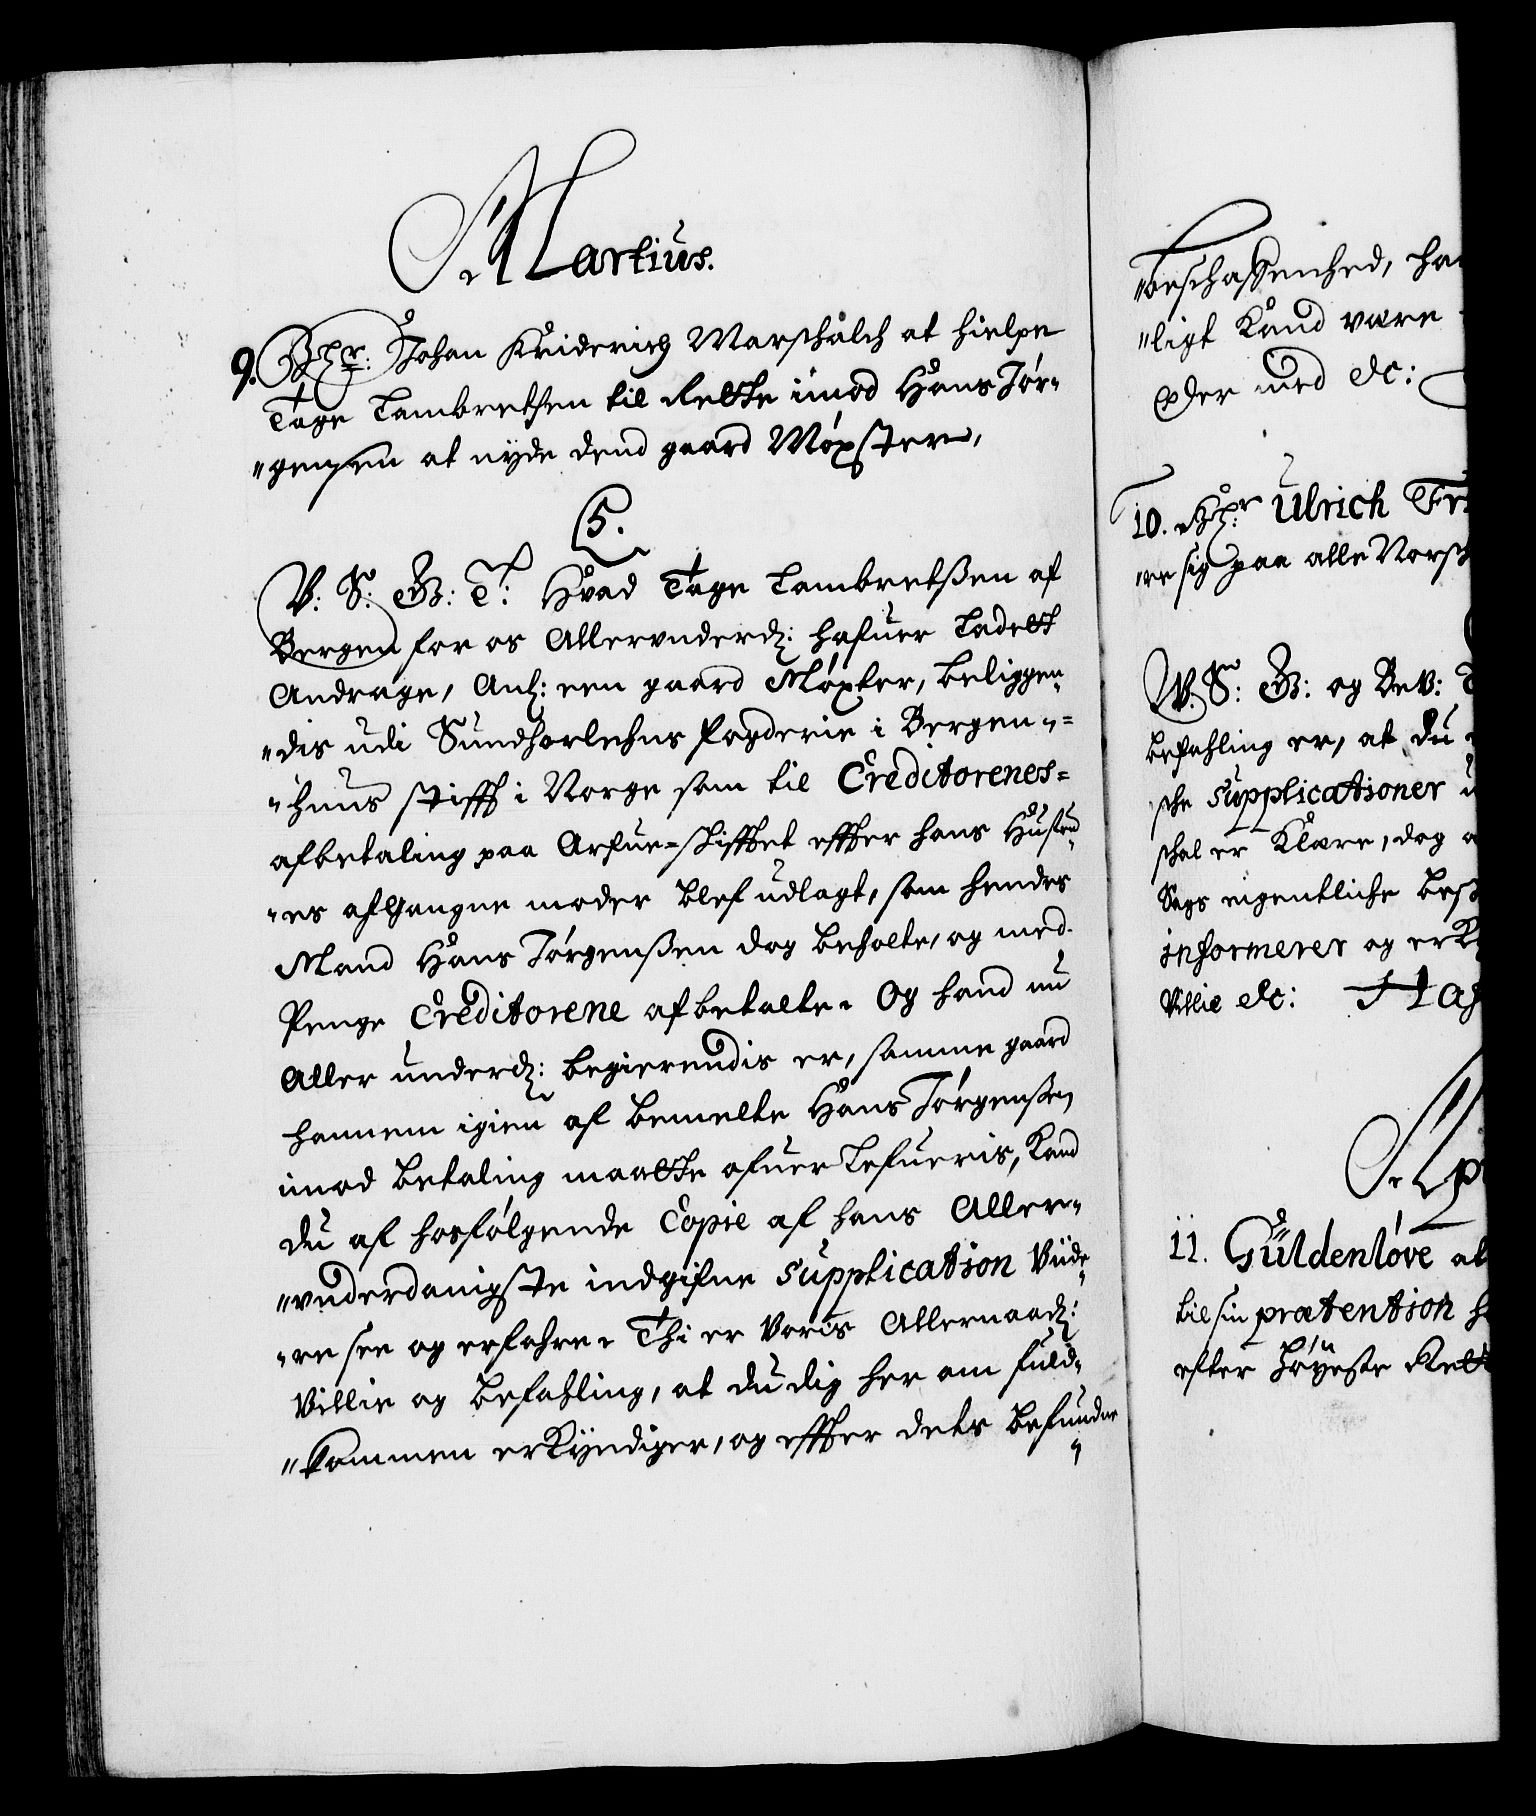 Martius.
9. Hr: Johan Friderich Marschalch at hielpe
Tage Lambretsen til Rette imod Hans Jør-
"gensen at nyde dend gaard Møxster,
5.
V: S: G: T: Hvad Tage Lambretßen af
Bergen for os Allervnderd: hafuer Ladett
Andrage, Anl: een gaard Møxter, beliggen-
"dis udi Sundhorlehns fogderie i Bergen-
"huus stifft i Norge som til Creditorenes
afbetaling paa Arfue-skifftet effter hans Hustru-
"es afgangne moder blef udlagt, som hendes
Mand Hans Jørgenßen dog beholte, og med
Penge Creditorene afbetalte. Og hand nu
Aller underd: begierendis er, samme gaard
hannem igien af bemelte Hans Jørgenßen
imod betaling maatte ofuer Lefueris, Kand
du af hosfølgende Copie af hans Aller-
"vnderdanigste indgifne Supplication Viide-
"re see og erfahre. Thi er Voris Allernaad:
Villie og befahling, at du dig her om fuld-
"kommen erkyndiger, og effter dets befundne
"beschaffenhed, ha
"ligt Kand være
der med etc:
10. Hr Ulrich Fr
"re sig paa alle Vorsch
V. S: G: og Bev: T
befahling er, at du
sche Supplicationer
schal er Klære, dog
Sags eigentliche besch
informerer og erk
Villie etc: Haf
Ap
11. Güldenløve at
til sin prætention h
efter høyeste Rett